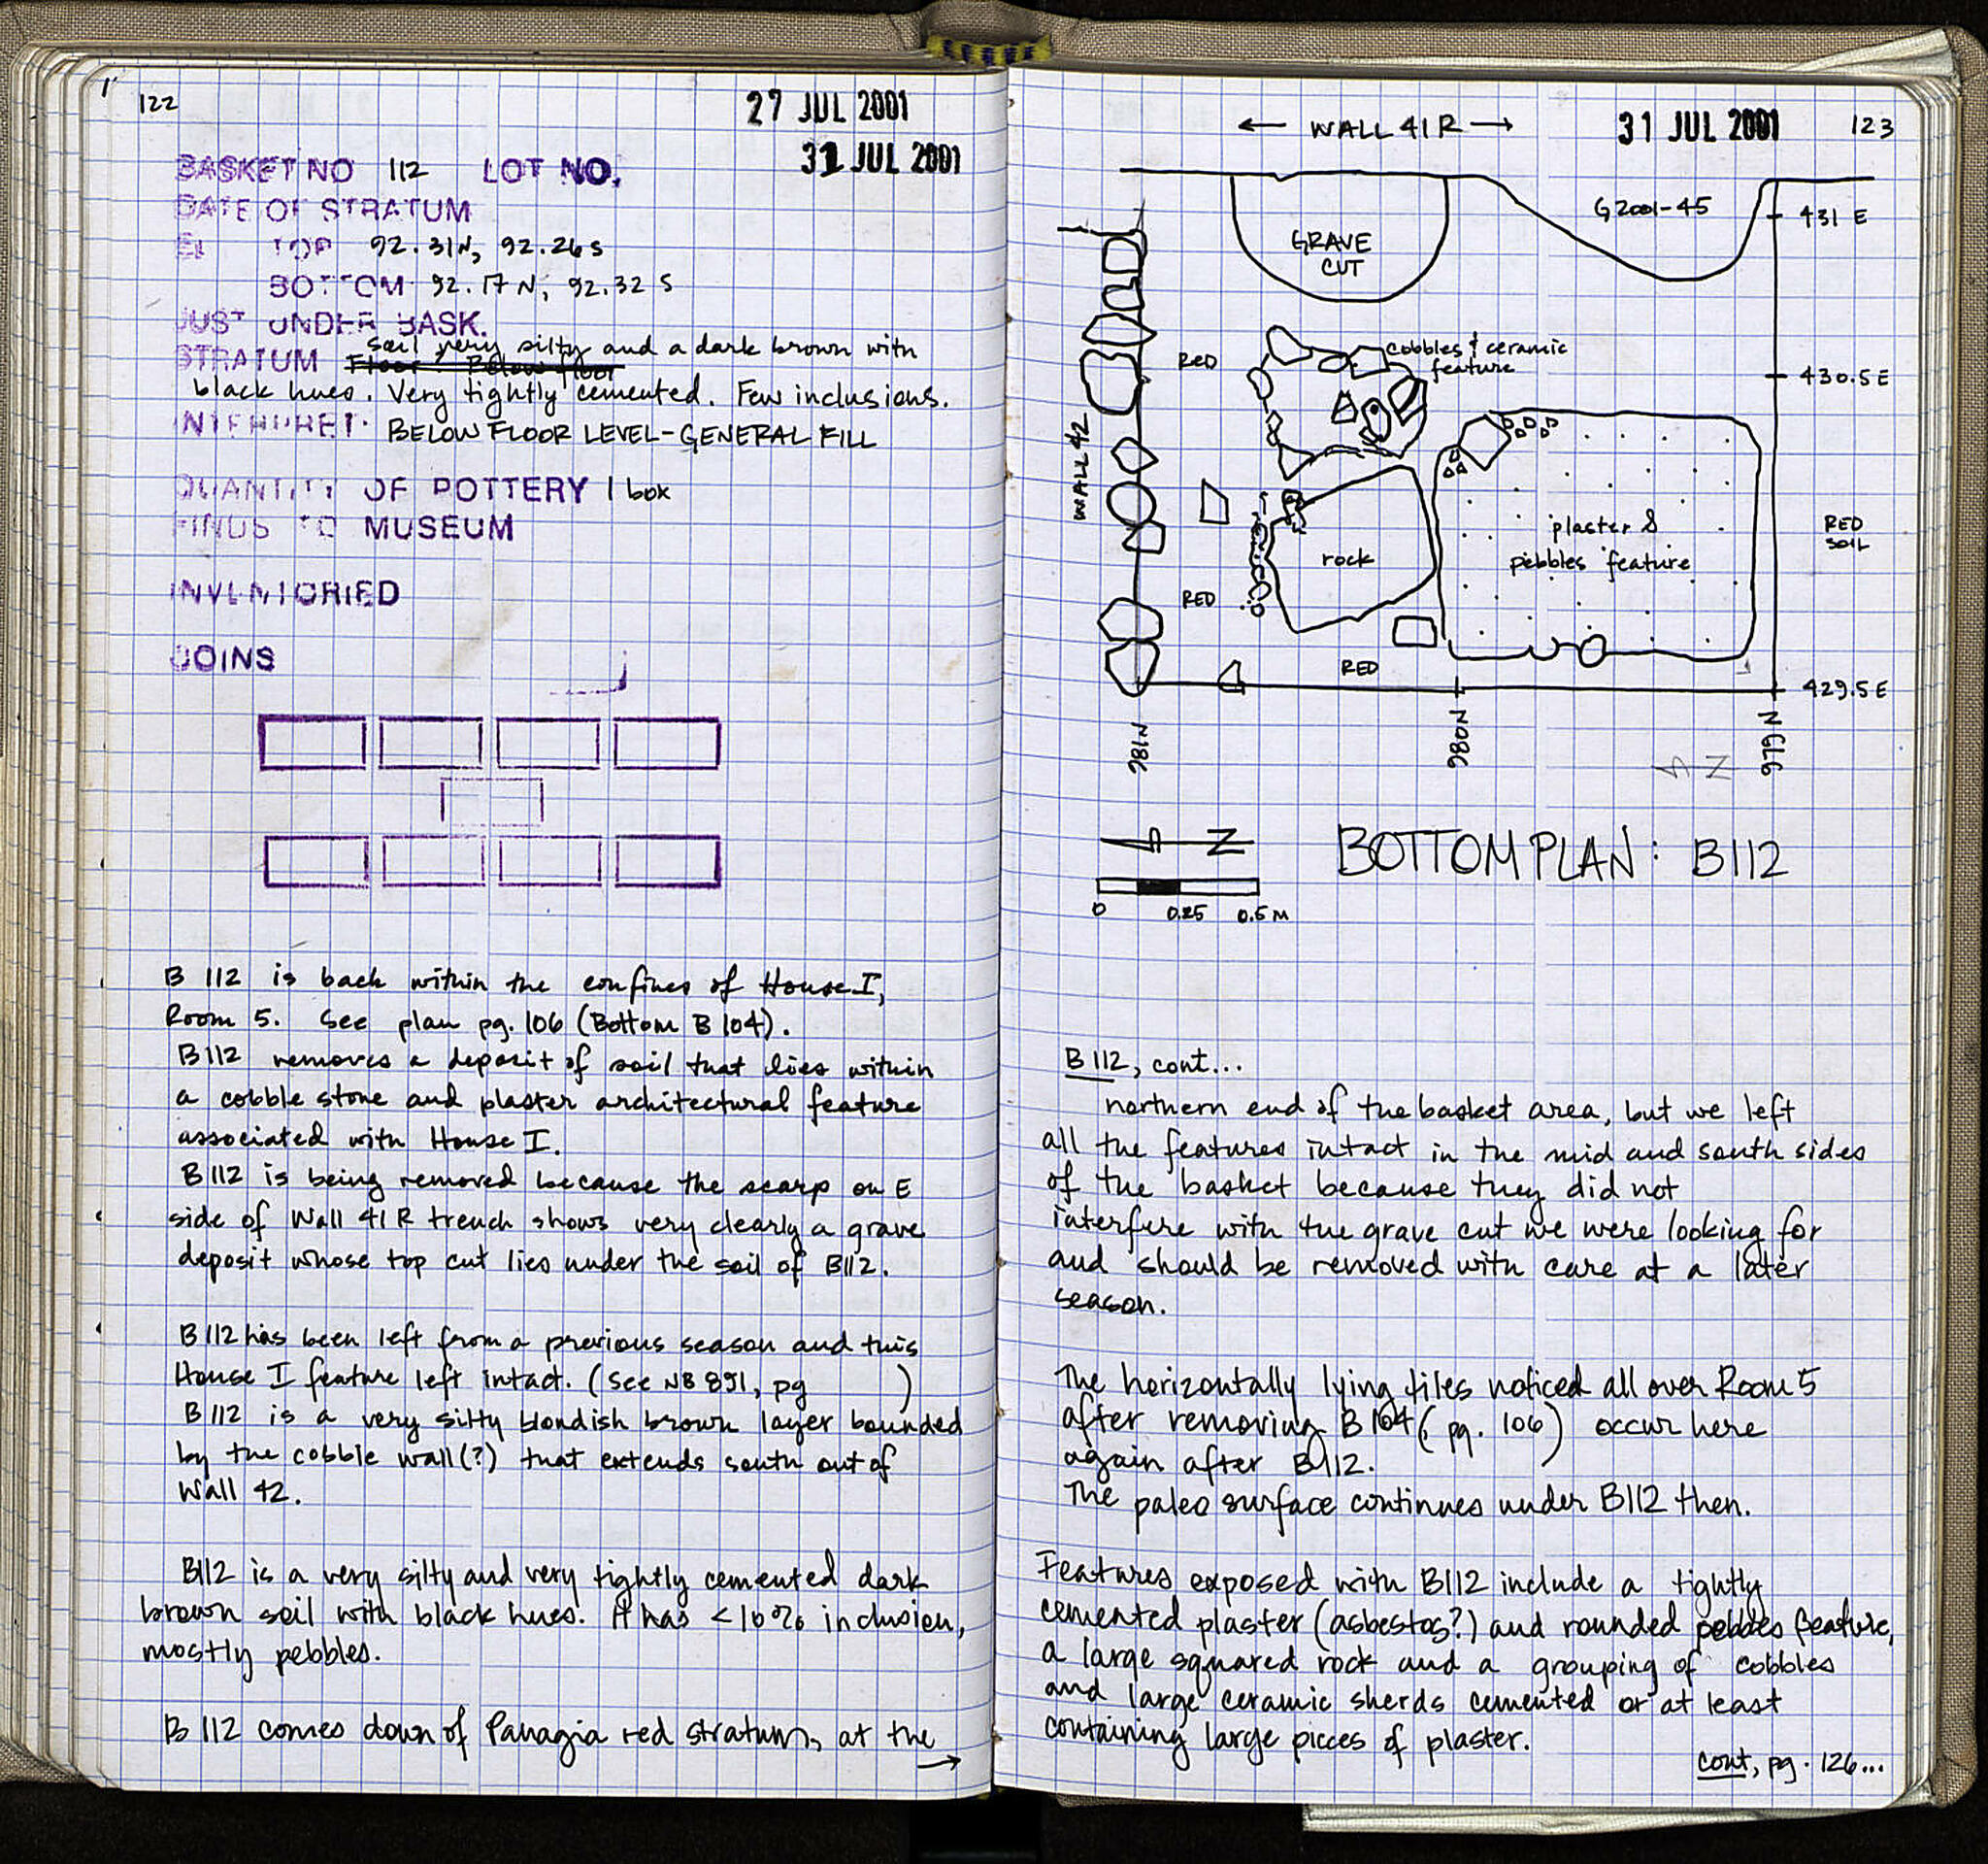 122
27 JUL 2001
31 JUL 2001
BASKET NO 112 LOT NO.
DATE OF STRATUM
EL TOP 92.31N, 92.26 S
BOTTOM 92.17 N, 92.32 S
JUST UNDER BASK.
soil very silty and a dark brown with
STRATUM Floor: Below floor
black hues. Very tightly cemented. Few inclusions.
INTERPRET. BELOW FLOOR LEVEL-GENERAL FILL
QUANTITY OF POTTERY 1 box
FINDS TO MUSEUM
INVENTORIED
COINS
B 112 is back within the confines of House I,
Room 5. See plan pg. 106 (Bottom B 104).
B112 removes a deposit of soil that lies within
a cobble stone and plaster architectural feature
associated with House I.
B 112 is being removed because the scarp on E
side of Wall 41 R trench shows very clearly a grave
deposit whose top cut lies under the soil of B112.
B 112 has been left from a previous season and this
House I feature left intact. (See NB 891, pg )
B 112 is a very silty blondish brown layer bounded
by the cobble wall (?) that extends south out of
Wall 42.
B112 is a very silty and very tightly cemented dark
brown soil with black hues. It has <10% inclusion,
mostly pebbles.
B 112 comes down of Panagia red stratum, at the
→
← WALL 41 R →
31 JUL 2001
123
G2001-45
431 E
GRAVE
CUT
RED
cobbles & ceramic
feature
430.5 E
WALL 42
rock
plaster &
pebbles feature
RED
SOIL
RED
RED
429.5 E
981N
980N
979 N
N
N
0 0.25 0.5 M
BOTTOM PLAN: B112
B 112, cont...
northern end of the basket area, but we left
all the features intact in the mid and south sides
of the basket because they did not
interfere with the grave cut we were looking for
and should be removed with care at a later
season.
The horizontally lying tiles noticed all over Room 5
after removing B 104 (pg. 106) occur here
again after B112.
The paleo surface continues under B112 then.
Features exposed with B112 include a tightly
cemented plaster (asbestos?) and rounded pebbles feature,
a large squared rock and a grouping of cobbles
and large ceramic sherds cemented or at least
containing large pieces of plaster.
cont, pg. 126...